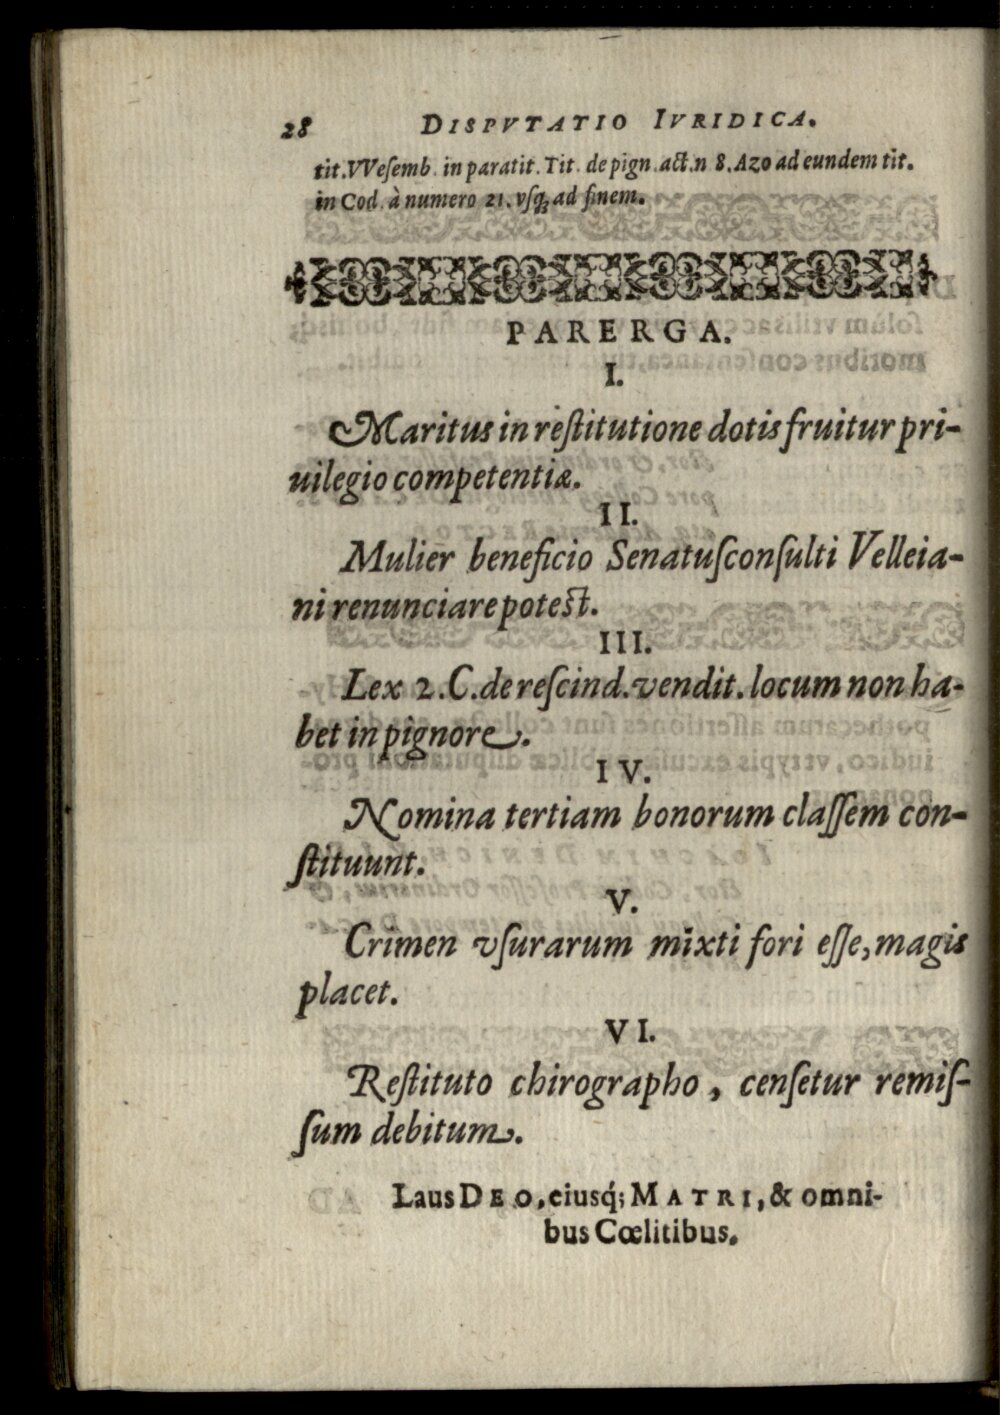 28 DISPVTATIO IVRIDICA.
tit.VVeſemb. in paratit. Tit. de pign. act. n 8. Azo ad eundem tit.
in Cod. à numero 21. vſq; ad finem.
PARERGA.
I.
Maritus in reſtitutione dotis fruitur pri-
uilegio competentiæ.
II.
Mulier beneficio Senatuſconſulti Velleia-
ni renunciare poteſt.
III.
Lex 2. C. de reſcind. vendit. locum non ha-
bet in pignore.
IV.
Nomina tertiam bonorum claſſem con-
ſtituunt.
V.
Crimen vſurarum mixti fori eſſe, magis
placet.
VI.
Reſtituto chirographo, cenſetur remiſ-
ſum debitum.
Laus DEO, eiusq́; MATRI, & omni-
bus Cœlitibus.